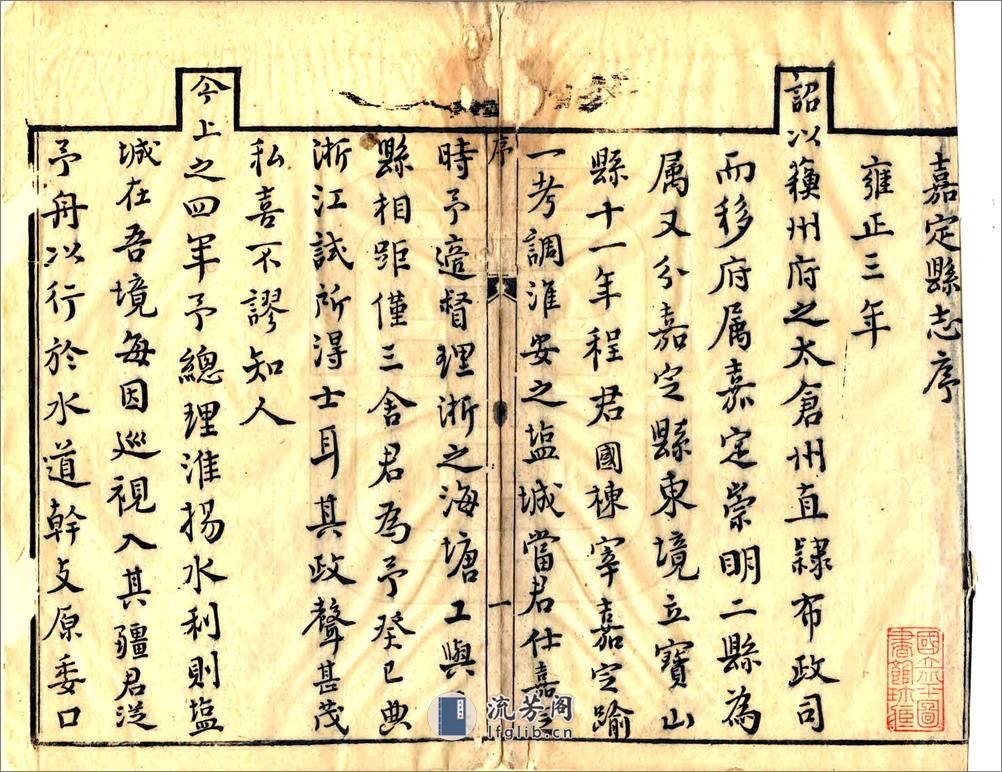 嘉定縣志序
雍正三年
詔以蘓州府之太倉州直隷布政司
而移府属嘉定崇明二縣為
属又分嘉定縣東境立寶山
縣十一年程君國棟宰嘉定踰
一考調淮安之塩城當君仕嘉定
序
一
時予適督理浙之海塘工與
縣相距僅三舍君為予癸巳典
浙江試所得士耳其政聲甚茂
私喜不謬知人
今上之四年予總理淮揚水利則塩
城在吾境每因巡視入其疆君送
予舟以行於水道幹支原委口
流芳阁
lfglib.cn